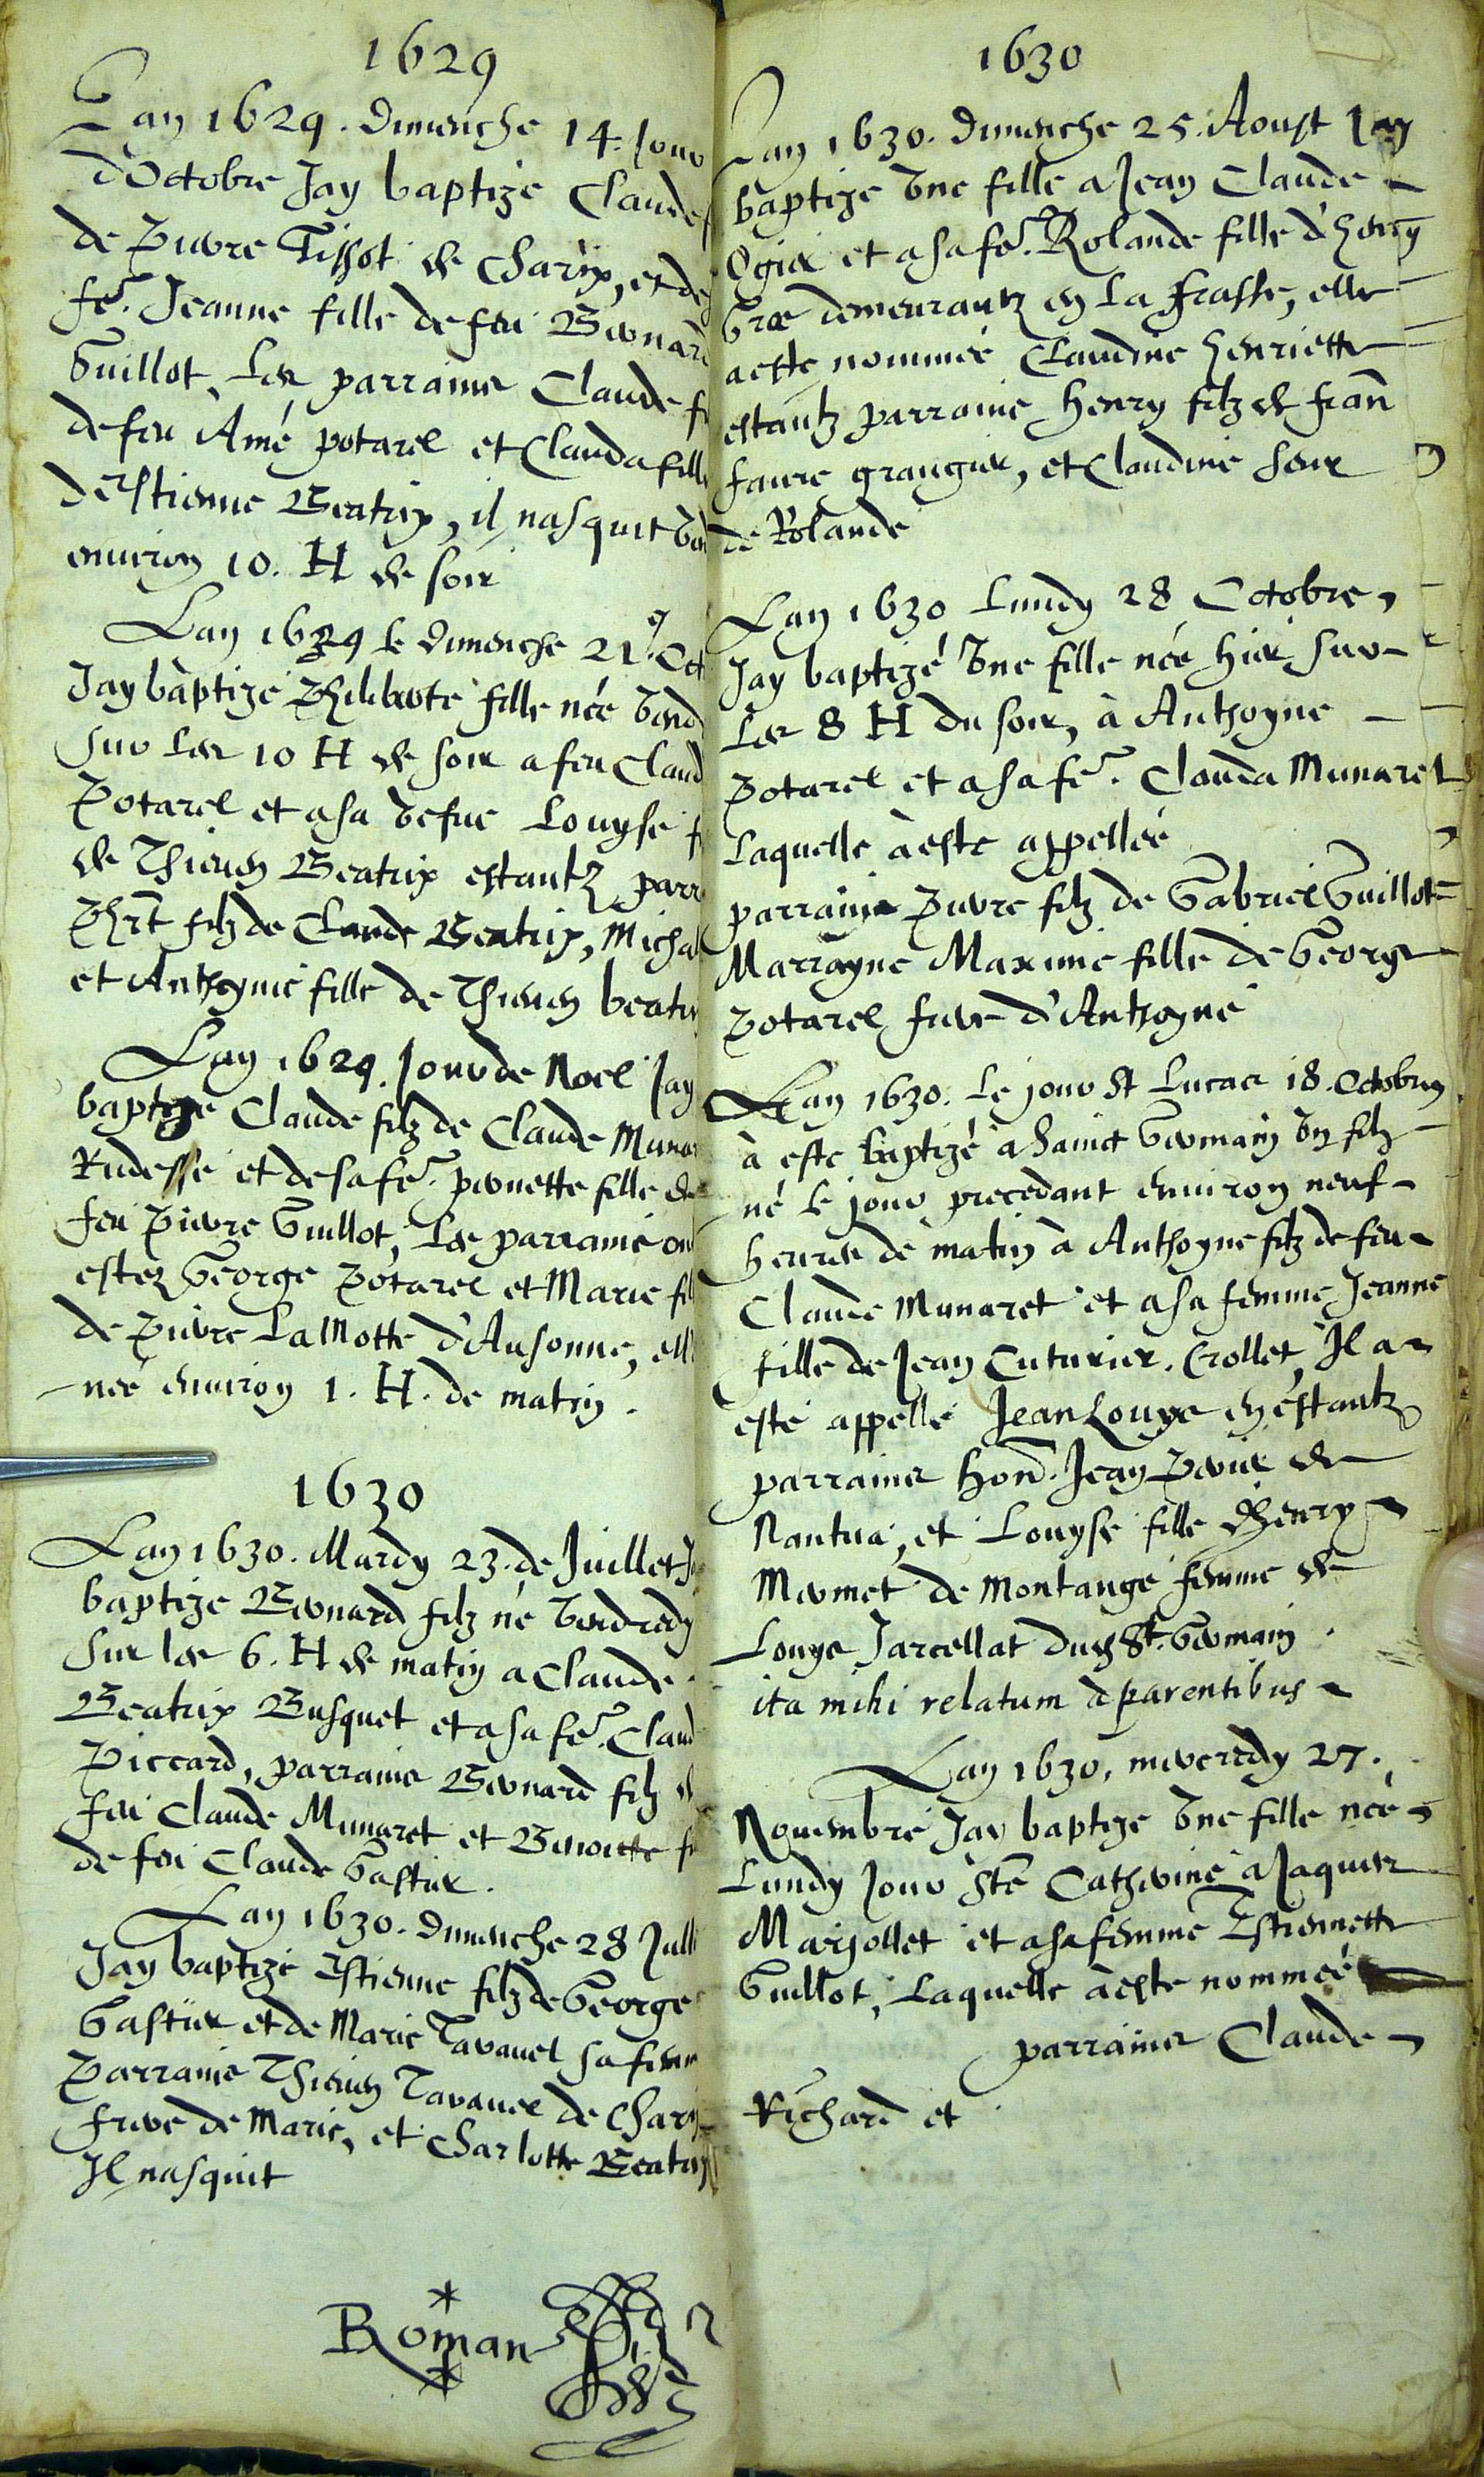 1629
Lan 1629. Dimenche 14. Jour
d'Octobre Jay baptizé Claude
de Pierre Tissot de Charix, et de
fē. Jeanne fille de feu Bernard
Guillot, Les parrains Claude
de feu Amé potarel et Clauda fille
d'Estienne Beatrix, il nasquit
environ 10. H de soir
Lan 1629 le dimenche 21. Oct
Jay baptizé Philiberte fille née
sur les 10 H de soir a feu Claud
Potarel et a sa vefve Louyse
de Thieven Beatrix estantz parr
Phrt filz de Claude Beatrix, Micha
et Anthoynie fille de Thieven beatri
Lan 1629. Jour de Noel Jay
baptize Claude filz de Claude Muna
Rudesse et de sa fē. pernette fille de
feu Pierre Guillot, Les parrains on
estez George Potarel et Marie fil
de Pierre La Motte d'Ausonne, ell
née environ 1. H. de matin.
1630
Lan 1630. Mardy 23. de Juillet
baptize Bernard filz né vendredy
sur les 6. H de matin a Claude
Beatrix Busquet et a sa fē. Claud
Piccard, parrains Bernard filz d
feu Claude Munaret et Benoitte f
de feu Claude Gastier.
Lan 1630. Dimenche 28 Juill
Jay baptizé Estienne filz de George
Gastier et de Marie Tavanel sa fem
Parrains Thieven Tavanel de Chari
frere de Marie, et Charlotte Beatrix
Il nasquit
Roman
1630
Lan 1630. Dimenche 25. Aoust Jay
baptize Vne fille a Jean Claude
Ogier et a sa fē. Rolande fille d'henry
demeurantz en La frasse, elle
a esté nommée Claudine henriette
estantz parrains henry filz de frañ
favre grangier, et Claudine seur
de Rolande
Lan 1630 Lundy 28 Octobre,
Jay baptizé Vne fille née hier sur
Les 8 H du soir, à Anthoyne
Potarel et a sa fē. Clauda Munaret
Laquelle à esté appellée
parrains Pierre filz de Gabriel Guillot
Marrayne Maxime fille de George
Potarel, frere d'Anthoyne
Lan 1630. Le jour St Lucas 18. Octobre
à esté baptizé a Sainct Germain Vn filz
né le jour precedant environ neuf
heures de matin à Anthoyne filz de feu
Claude Munaret et a sa femme Jeanne
fille de Jean Cuturier. Crollet, Il a
esté appellé Jean Louys en estantz
parrains hoñ. Jean Perier de
Nantua, et Louyse fille d'henry
Mermet de Montange femme de
Louys Jarcellat dud. St. Germain
ita mihi relatum à parentibus
Lan 1630, mercredy 27.
Novembre Jay baptize Vne fille née,
Lundy Jour Ste Catherine a Jaques
Marjollet et a sa femme Estiennette
Guillot, Laquelle à esté nommée
parrains Claude
Richard et